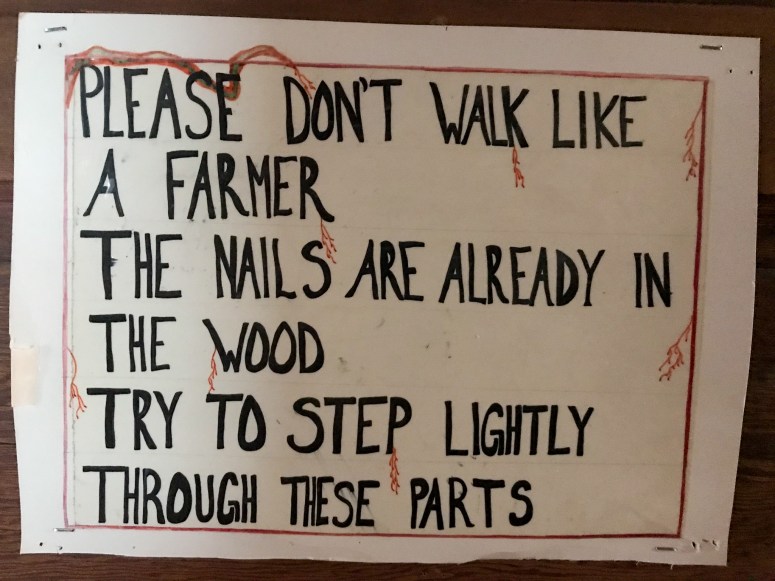 PLEASE DON'T WALK LIKE
A FARMER
THE NAILS ARE ALREADY IN
THE WOOD
TRY TO STEP LIGHTLY
THROUGH THESE PARTS